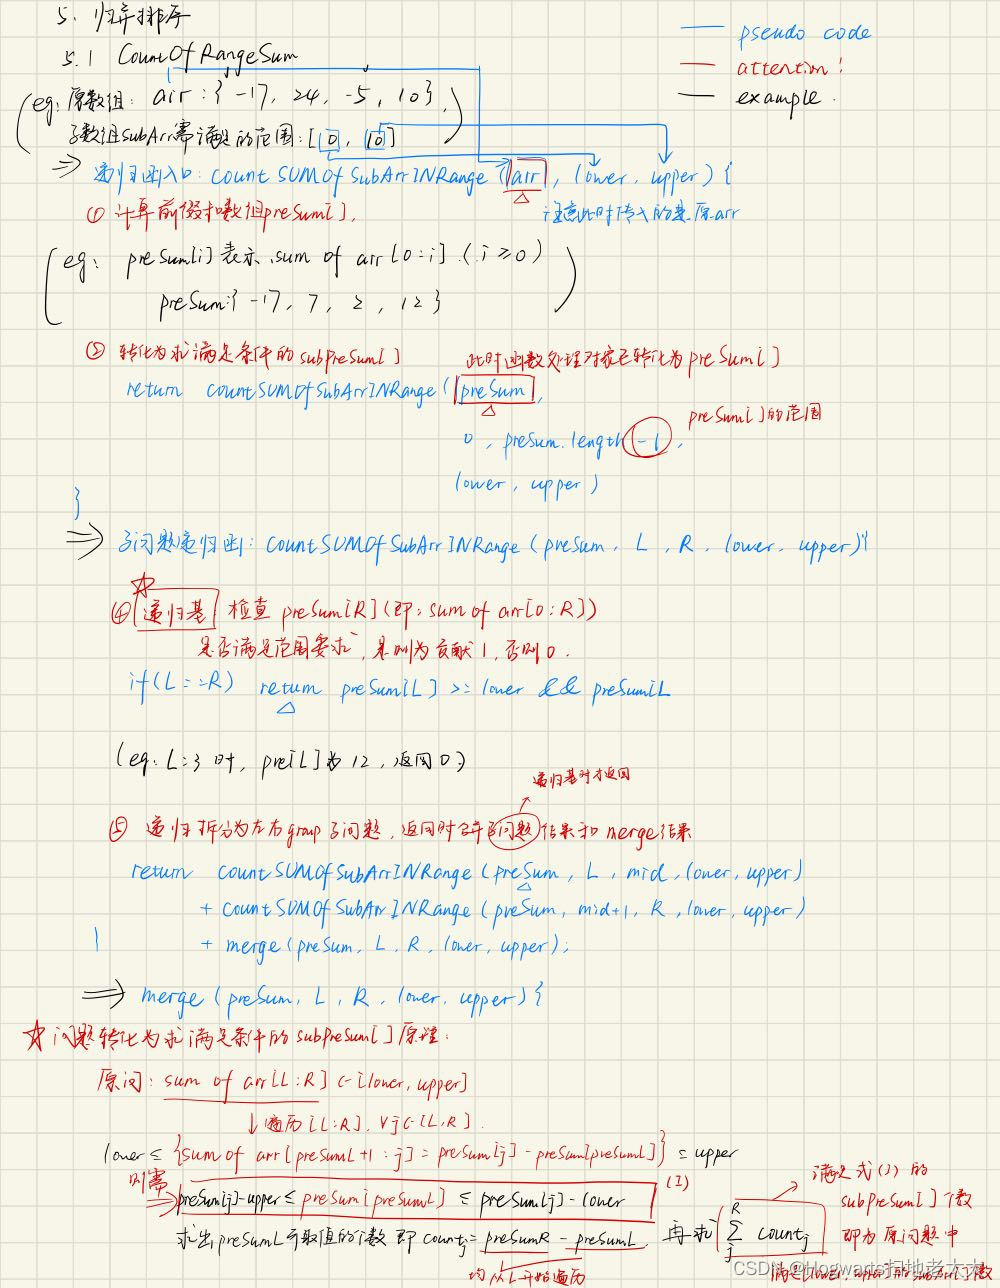 5. 归并排序
5.1 CountOfRangeSum
pseudo code
attention!
example.
(eg: 原数组: arr:{-17, 24, -5, 10},
子数组SubArr需满足的范围:[0, 10])
⇒ 递归函入口: countSUMOfSubArrINRange(arr, lower, upper){
注意此时传入的是原arr
① 计算前缀和数组preSum[],
(eg: preSum[i]表示 sum of arr[0:i].(i≥0)
preSum:{-17, 7, 2, 12})
② 转化为求满足条件的subPreSum[]
此时函数处理对象已转化为preSum[]
return countSUMOfSubArrINRange(preSum,
0, preSum.length-1,
preSum[]的范围
lower, upper)
}
⇒ 子问题递归函: countSUMOfSubArrINRange(preSum, L, R, lower, upper){
④ 递归基 检查 preSum[R](即: sum of arr[0:R])
是否满足范围要求, 是则为贡献1, 否则0.
if(L==R) return preSum[L]>=lower && preSum[L
(eg: L=3时, pre[L]为12, 返回0)
递归基时才返回
⑤ 递归拆分为左右group子问题, 返回时合并子问题结果和merge结果
return countSUMOfSubArrINRange(preSum, L, mid, lower, upper)
+ countSUMOfSubArrINRange(preSum, mid+1, R, lower, upper)
+ merge(preSum, L, R, lower, upper);
}
⇒ merge(preSum, L, R, lower, upper){
☆ 问题转化为求满足条件的subPreSum[]原理:
原问: sum of arr[L:R] ∈[lower, upper]
↓遍历[L:R], ∀j∈[L,R].
lower ≤ {sum of arr[preSumL+1:j] = preSum[j]-preSum[preSumL]} ≤ upper
则需 preSum[j]-upper ≤ preSum[preSumL] ≤ preSum[j]-lower (1)
满足式(1)的
subPreSum[]个数
即为原问题中
求出preSumL可取值的个数即countj=preSumR-preSumL, 再求 R∑j countj
均从L开始遍历
CSDN @Hogwarts扫地老太太